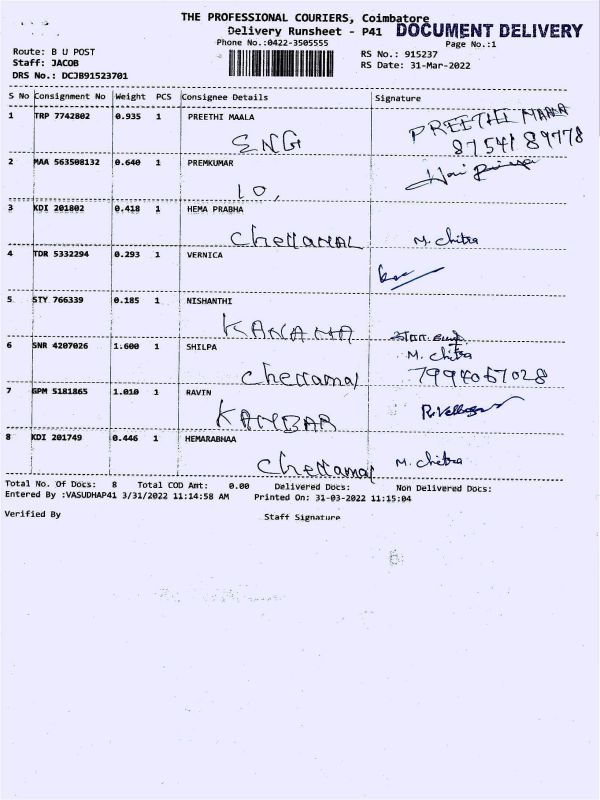 THE PROFESSIONAL COURIERS, Coimbatore
Delivery Runsheet - P41 DOCUMENT DELIVERY
Phone No.:0422-3505555 Page No.:1
Route: B U POST RS No.: 915237
Staff: JACOB RS Date: 31-Mar-2022
DRS No.: DCJB91523701
S No Consignment No Weight PCS Consignee Details Signature
1 TRP 7742802 0.935 1 PREETHI MAALA PREETHI MAALA
ENG 8754189778
2 MAA 563508132 0.640 1 PREMKUMAR
10,
3 KDI 201802 0.418 1 HEMA PRABHA
Chellamal M. Chitra
4 TDR 5332294 0.293 1 VERNICA
5 STY 766339 0.185 1 NISHANTHI
KANAMA
6 SNR 4207026 1.600 1 SHILPA M. Chitra
Chellamal 7994067028
7 GPM 5181865 1.010 1 RAVIN
KANBAR
8 KDI 201749 0.446 1 HEMARABHAA
Chellamal M. Chitra
Total No. Of Docs: 8 Total COD Amt: 0.00 Delivered Docs: Non Delivered Docs:
Entered By :VASUDHAP41 3/31/2022 11:14:58 AM Printed On: 31-03-2022 11:15:04
Verified By Staff Signature